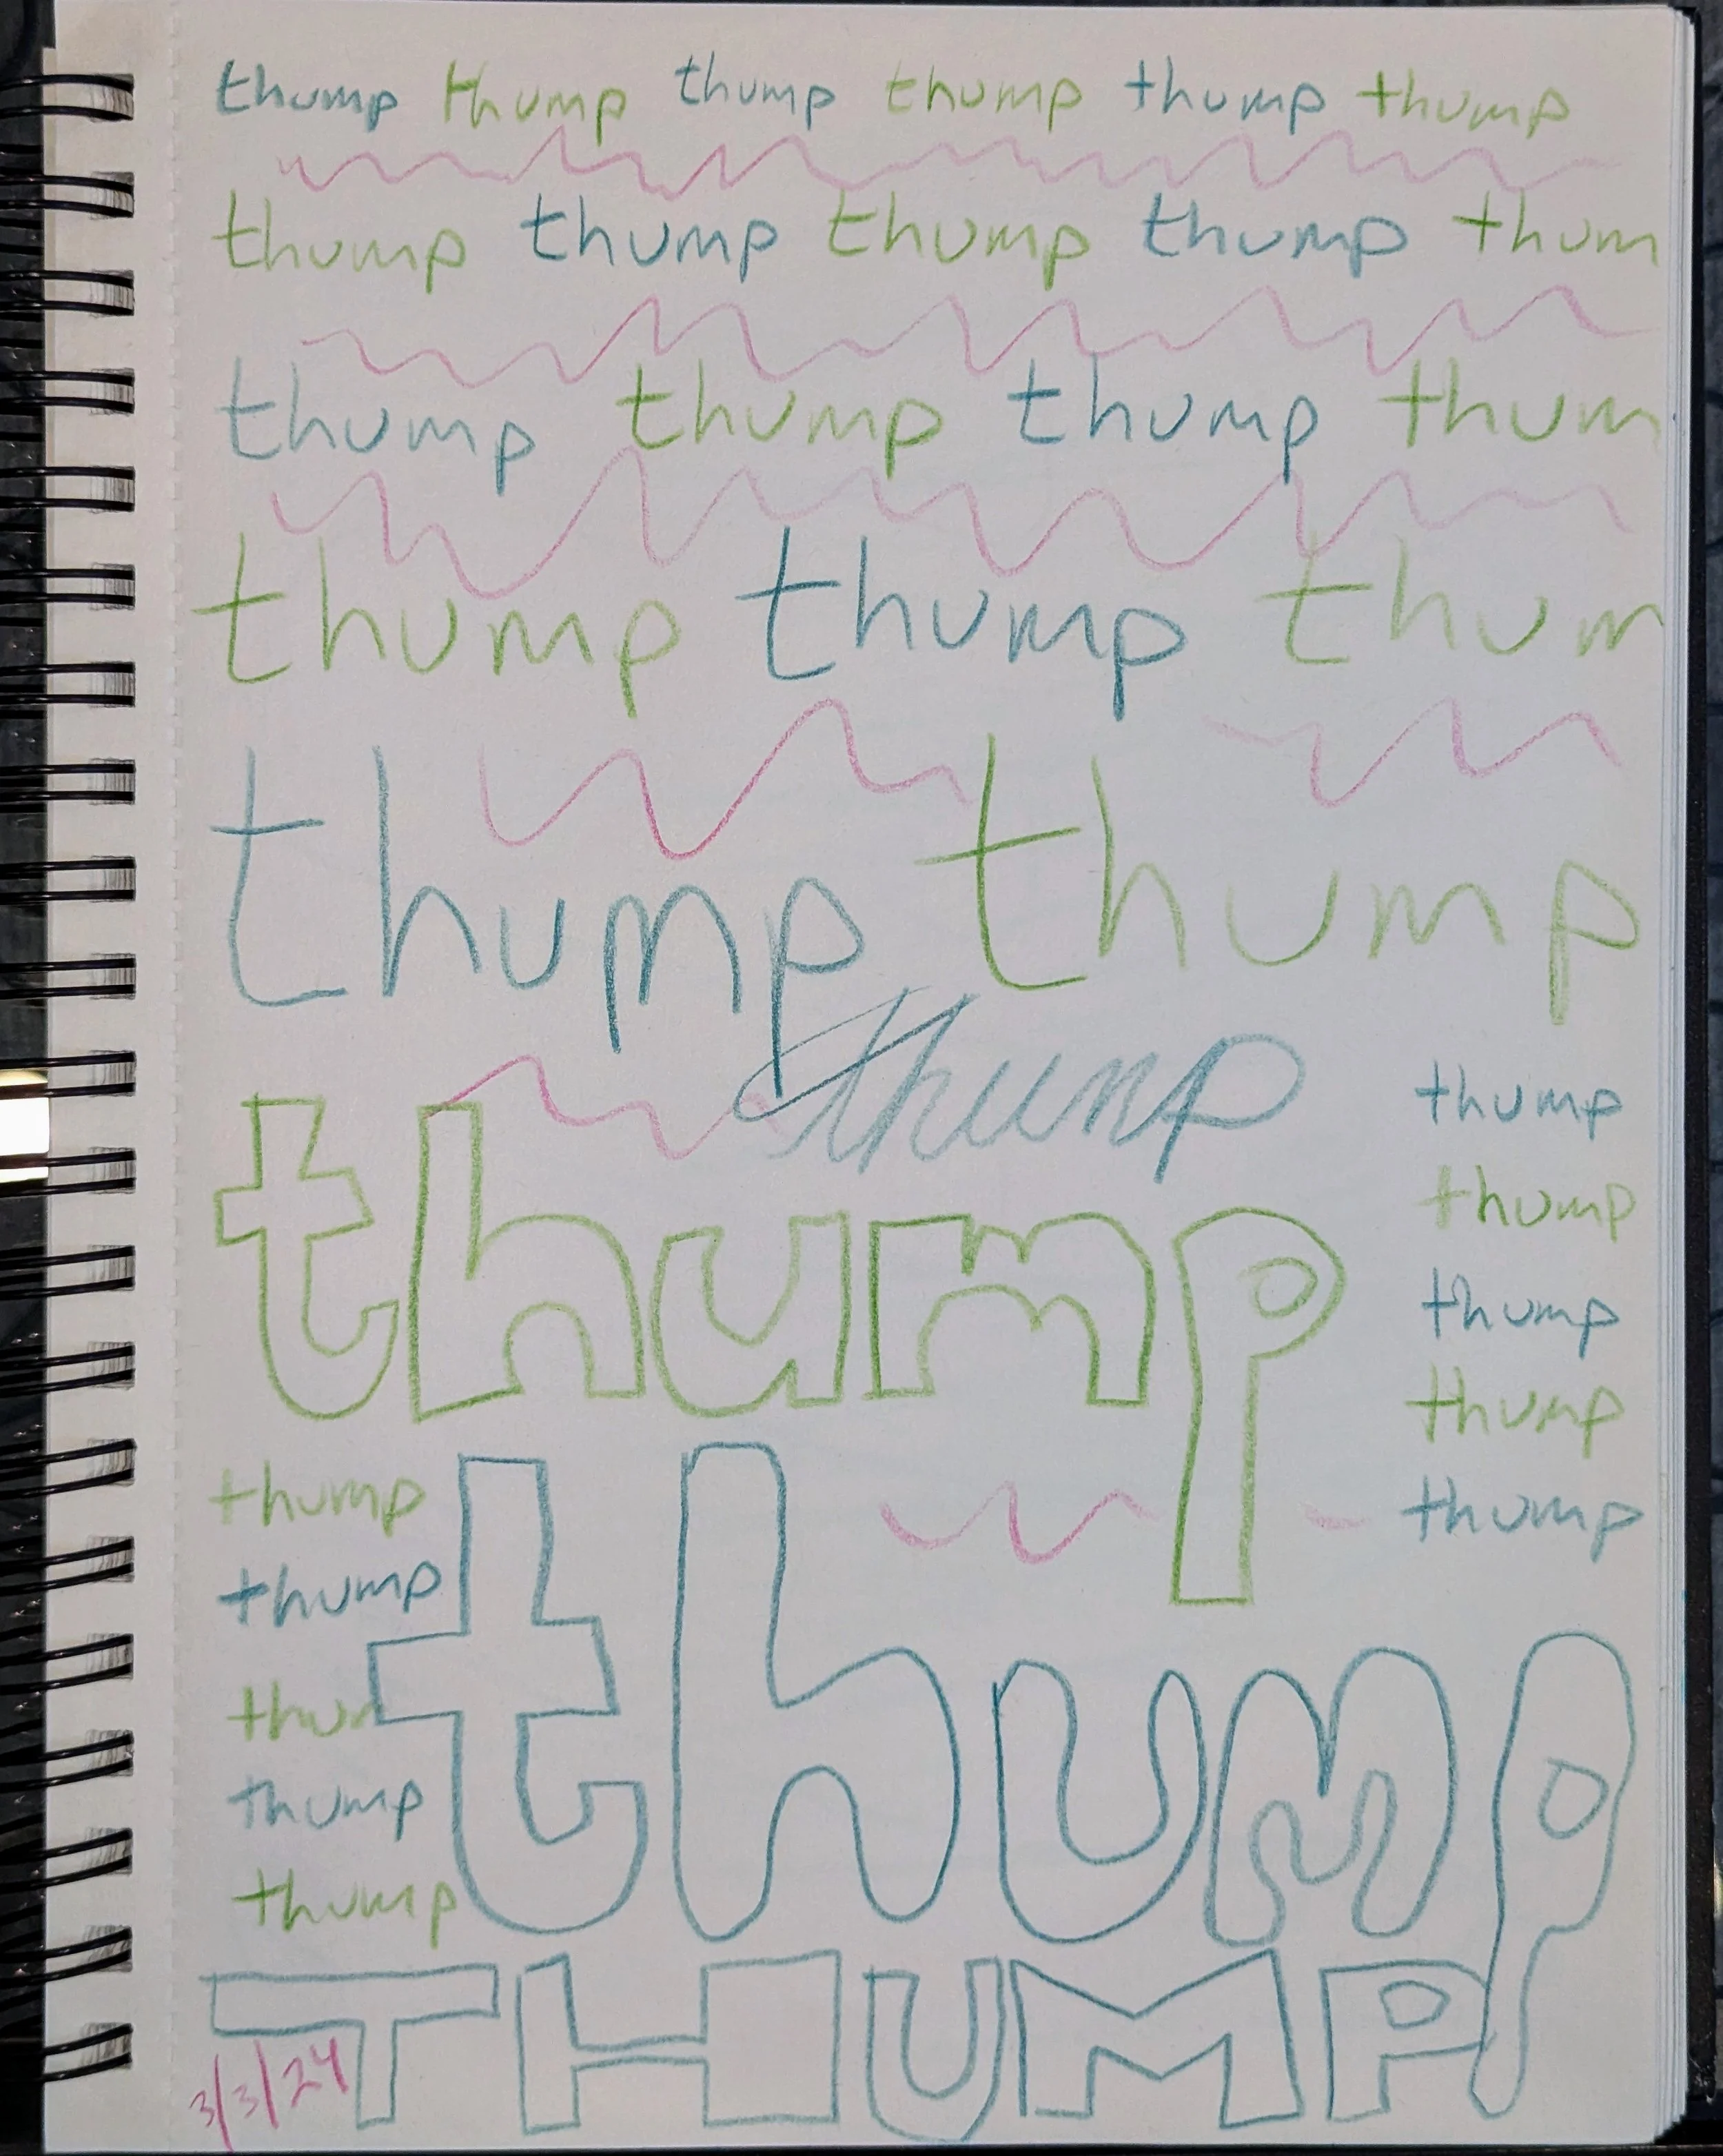 thump thump thump thump thump thump
thump thump thump thump thum
thump thump thump thum
thump thump thum
thump thump
thump
thump
thump
thump
thump
thump
thump
thump
thump
thump
thum
thump
thump
thump
THUMP
3/3/24